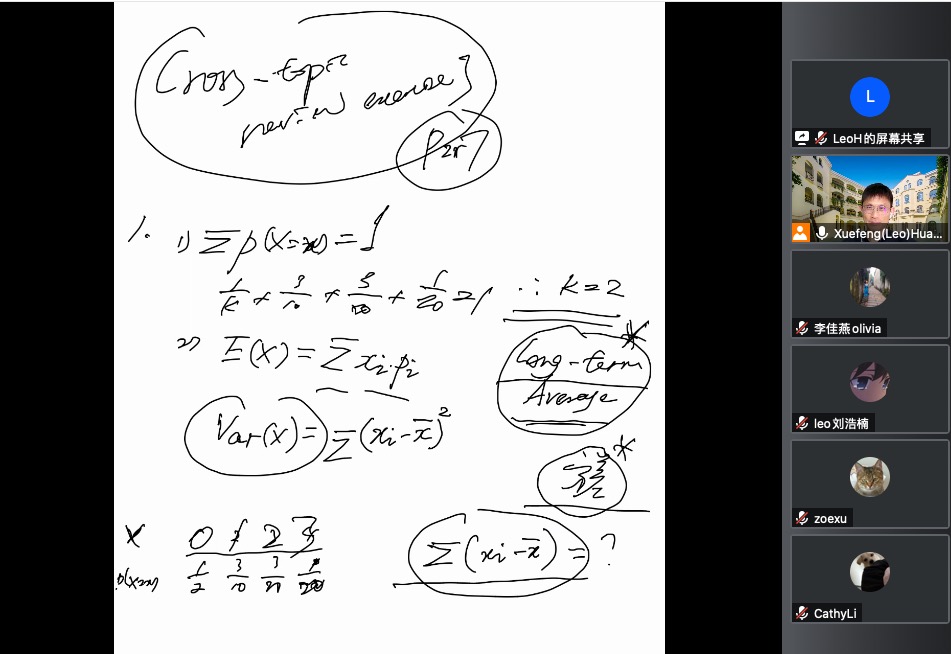 Cross-topic
review exercise 3
1. 1) Σp(X=x) = 1
1/k + 3/10 + 3/20 + 1/20 = 1 ∴ k=2
2) E(X) = Σxi·pi
Long-term
Average
Var(X) = Σ(xi-x̄)²
Σ(xi-x̄) = ?
x 0 1 2 3
p(X=x) 1/2 3/10 3/20 1/20
L
LeoH的屏幕共享
Xuefeng(Leo)Hua...
李佳燕olivia
leo刘浩楠
zoexu
CathyLi